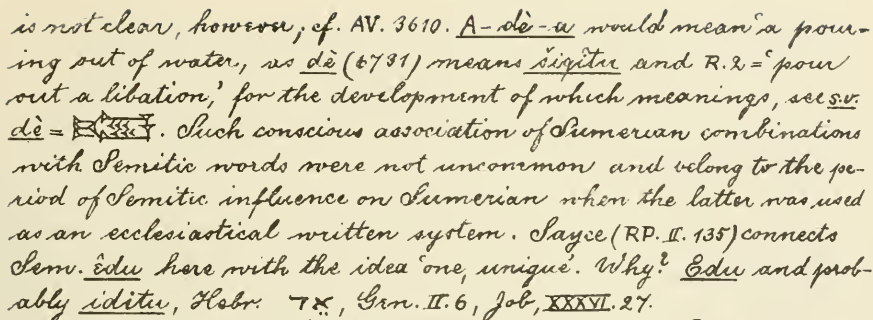 is not clear, however; cf. AV. 3610. A-dè-a would mean 'a pour-
ing out of water, as dè (6731) means šiqîtu and R.2 = 'pour
out a libation,' for the development of which meanings, see s.v.
dè = . Such conscious association of Sumerian combinations
with Semitic words were not uncommon and belong to the pe-
riod of Semitic influence on Sumerian when the latter was used
as an ecclesiastical written system. Sayce (RP. II. 135) connects
Sem. êdu here with the idea 'one, unique'. Why? Edu and prob-
ably iditu, Hebr. אֵד, Gen. II. 6, Job, XXXVI. 27.